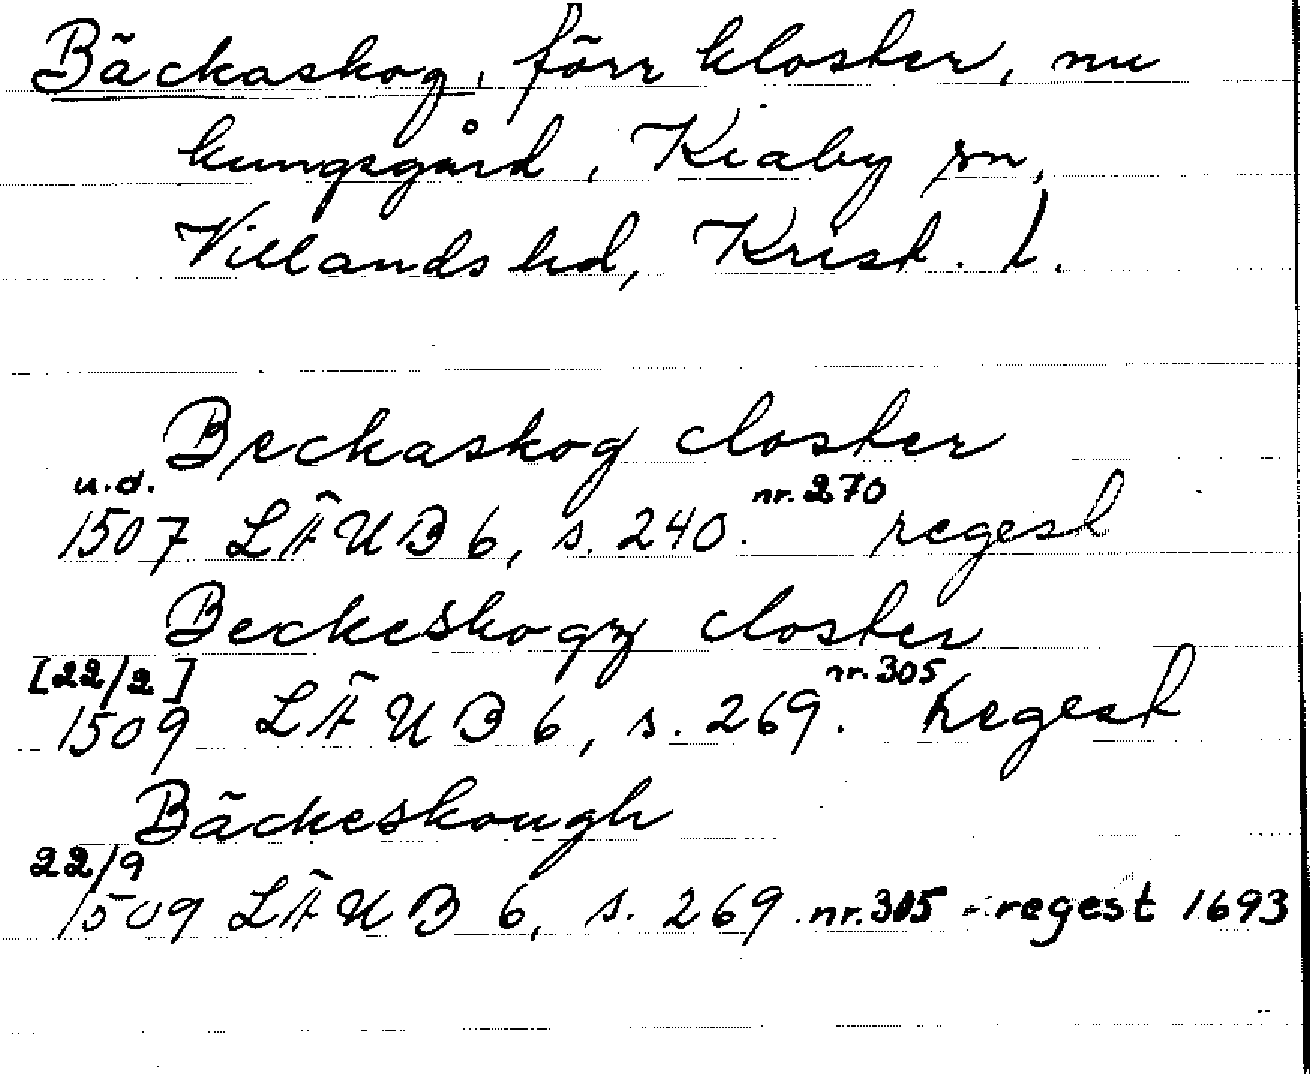 Bäckaskog, förr kloster, nu
kungsgård, Kiaby sn,
Villands hd, Krist. l.
Beckaskog closter
u.d.
1507 LÄUB 6, s. 240. nr. 270 regest
Beckeskogz closter
[22/2]
1509 LÄUB 6, s. 269. nr. 305 Regest
Bäckeskough
22/9
1509 LÄUB 6, s. 269 nr. 305 - regest 1693